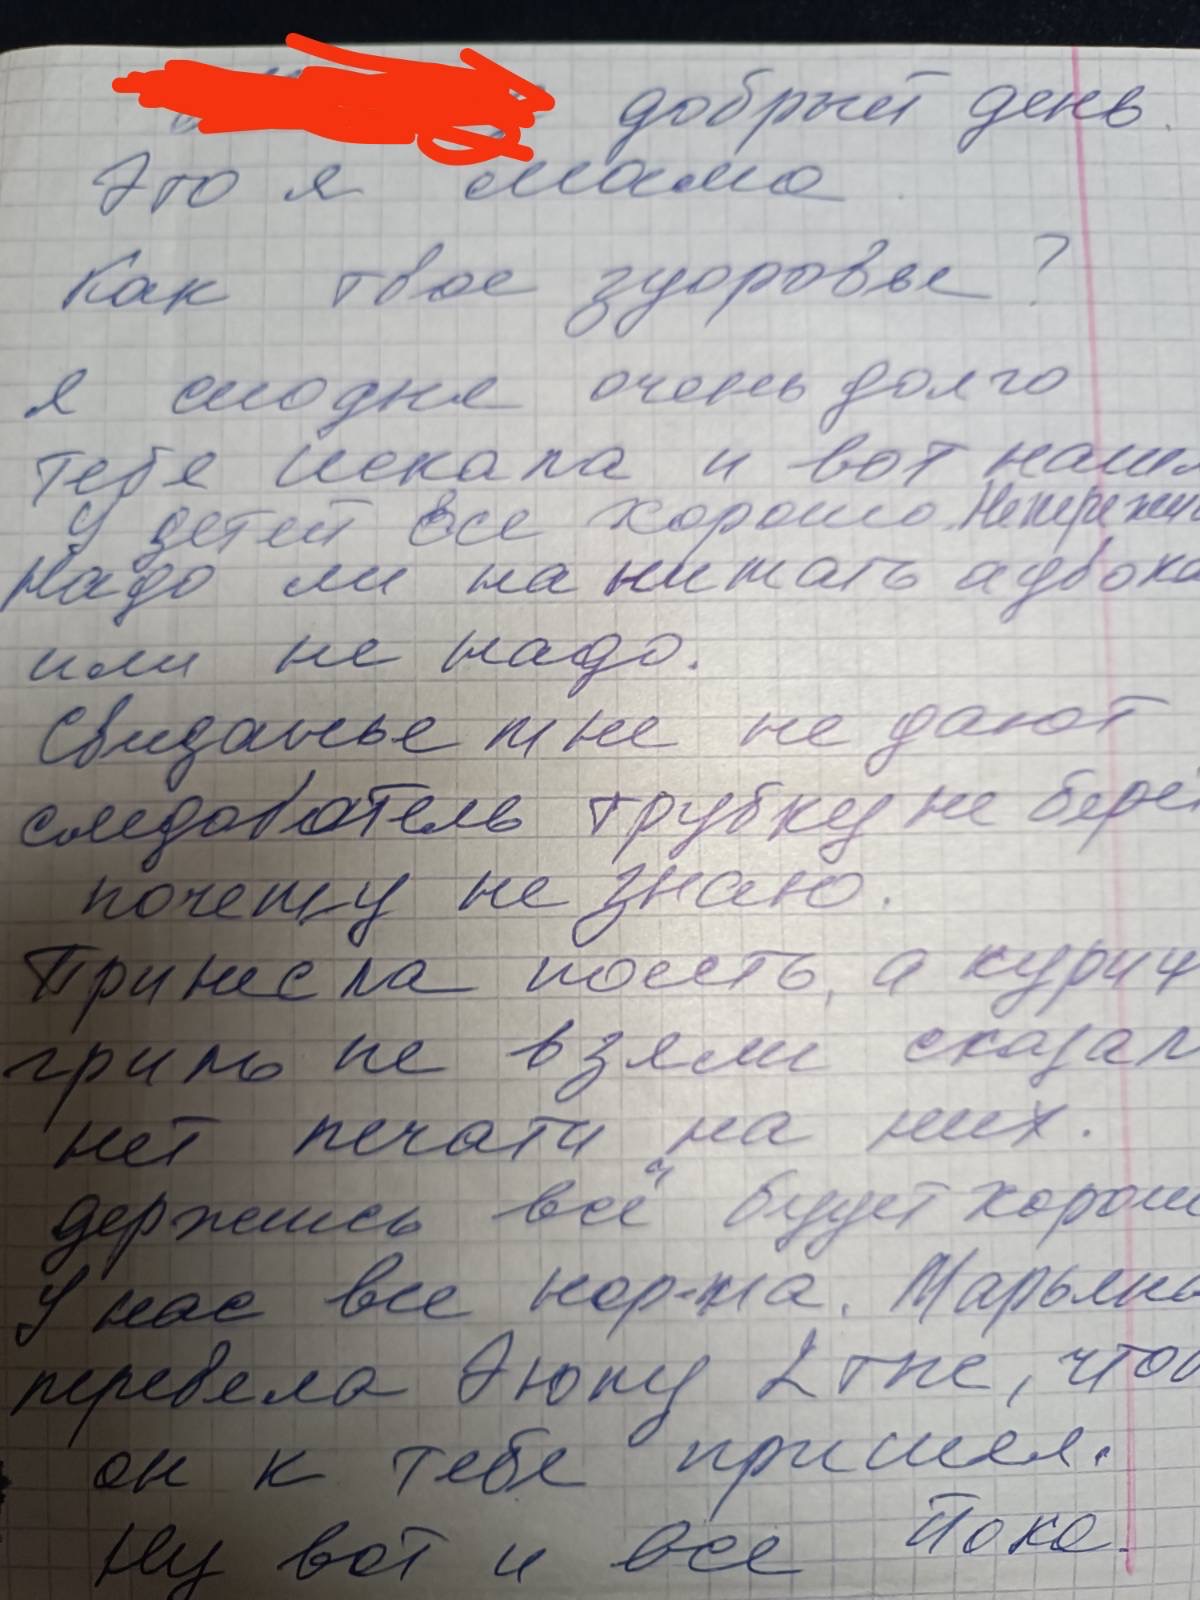 добрый день.
Это я мама
Как твое здоровье?
Я сегодня очень долго
тебя искала и вот нашл
У детей все хорошо. Непережив
Надо ли нанимать адвока
или не надо.
Свиданье мне не дают
следователь трубку не берё
почему не знаю.
Принесла поесть, а куриц
гриль не взяли сказал
нет печати на них.
держись всё будет хорош
У нас все нор-ма. Марьяна
перевела 2 тыс, чтоб
он к тебе пришел.
Ну вот и все Пока.